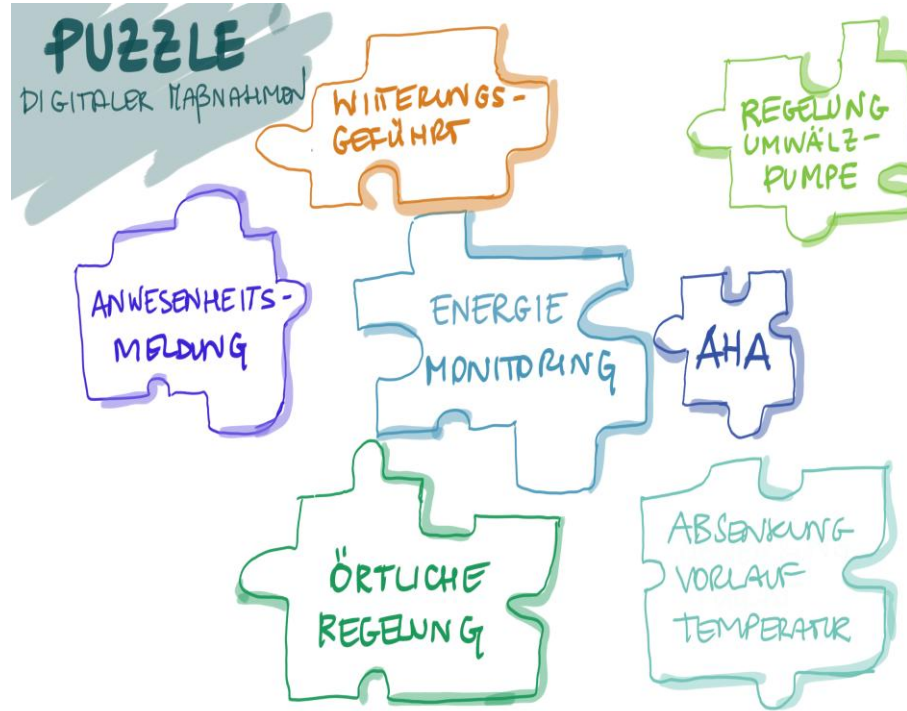 PUZZLE
DIGITALER MAẞNAHMEN
WITTERUNGS-
GEFÜHRT
REGELUNG
UMWÄLZ-
PUMPE
ANWESENHEITS-
MELDUNG
ENERGIE
MONITORING
AHA
ÖRTLICHE
REGELUNG
ABSENKUNG
VORLAUF
TEMPERATUR